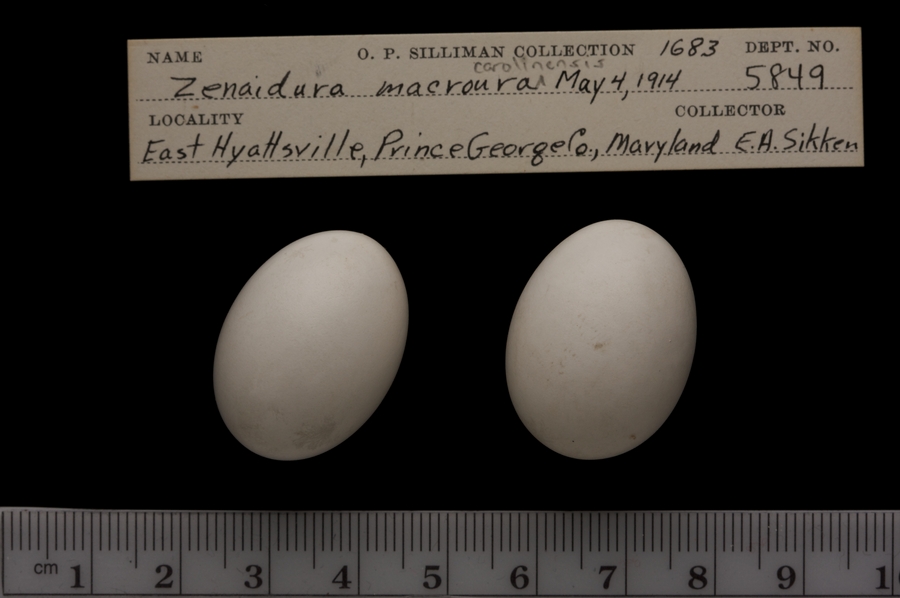 NAME O. P. SILLIMAN COLLECTION 1683 DEPT. NO.
carolinensis
Zenaidura macroura ^ May 4, 1914 5849
LOCALITY COLLECTOR
East Hyattsville, Prince George Co., Maryland E.A. Sikken
cm 1 2 3 4 5 6 7 8 9 1